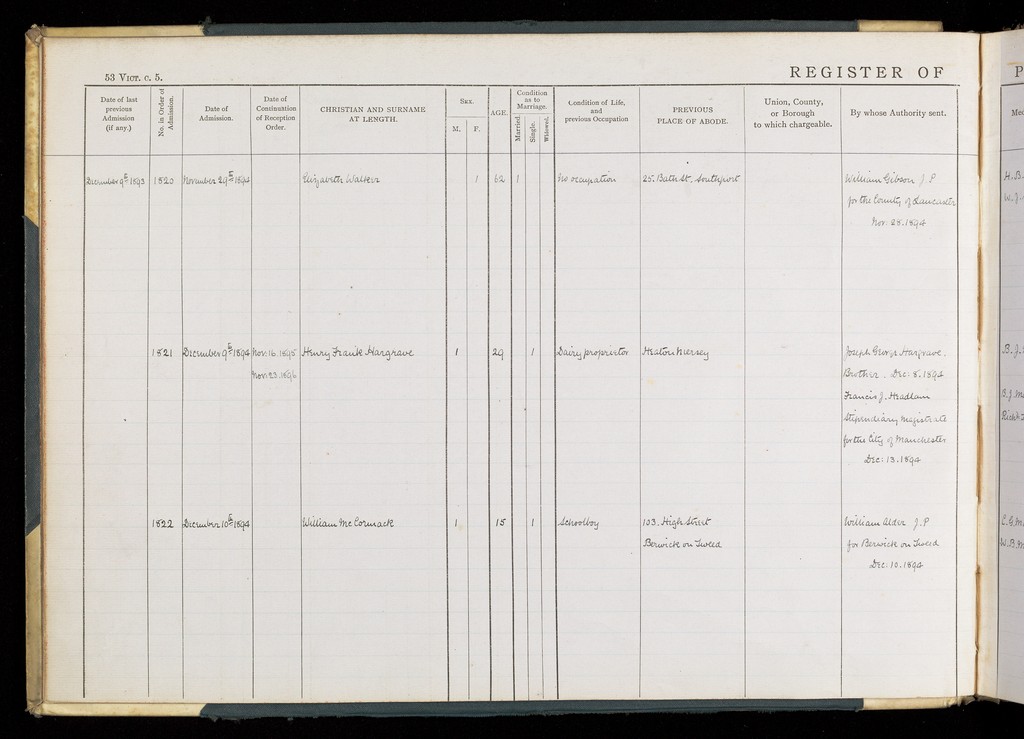 53 VICT. c. 5.
REGISTER OF
P
Date of last previous Admission (if any.)
No. in Order of Admission.
Date of Admission.
Date of Continuation of Reception Order.
CHRISTIAN AND SURNAME AT LENGTH.
SEX.
M.
F.
AGE.
Condition as to Marriage.
Married.
Single.
Widowed.
Condition of Life, and previous Occupation
PREVIOUS PLACE OF ABODE.
Union, County, or Borough to which chargeable.
By whose Authority sent.
Med
December 9th 1893 1820 November 29th 1894 Elizabeth Walker 1 62 1 No occupation 25. Bath St. Southport William Gibson J.P
for the County of Lancaster
Nov: 28. 1894
H.B.
W.J.
1821 December 9th 1894 Nov: 16. 1895 Henry Frank Hargrave 1 29 1 Dairy proprietor Heaton Mersey Joseph George Hargrave.
Nov: 23. 1896 Brother. Dec: 8. 1894
Francis J. Headlam
Stipendiary Magistrate
for the City of Manchester
Dec: 13. 1894
B.J.
B.J.M
1822 December 10th 1894 William Mc Cormack 1 15 1 Schoolboy 103. High Street William Alder J.P
Berwick on Tweed for Berwick on Tweed
Dec: 10. 1894
W.B.M